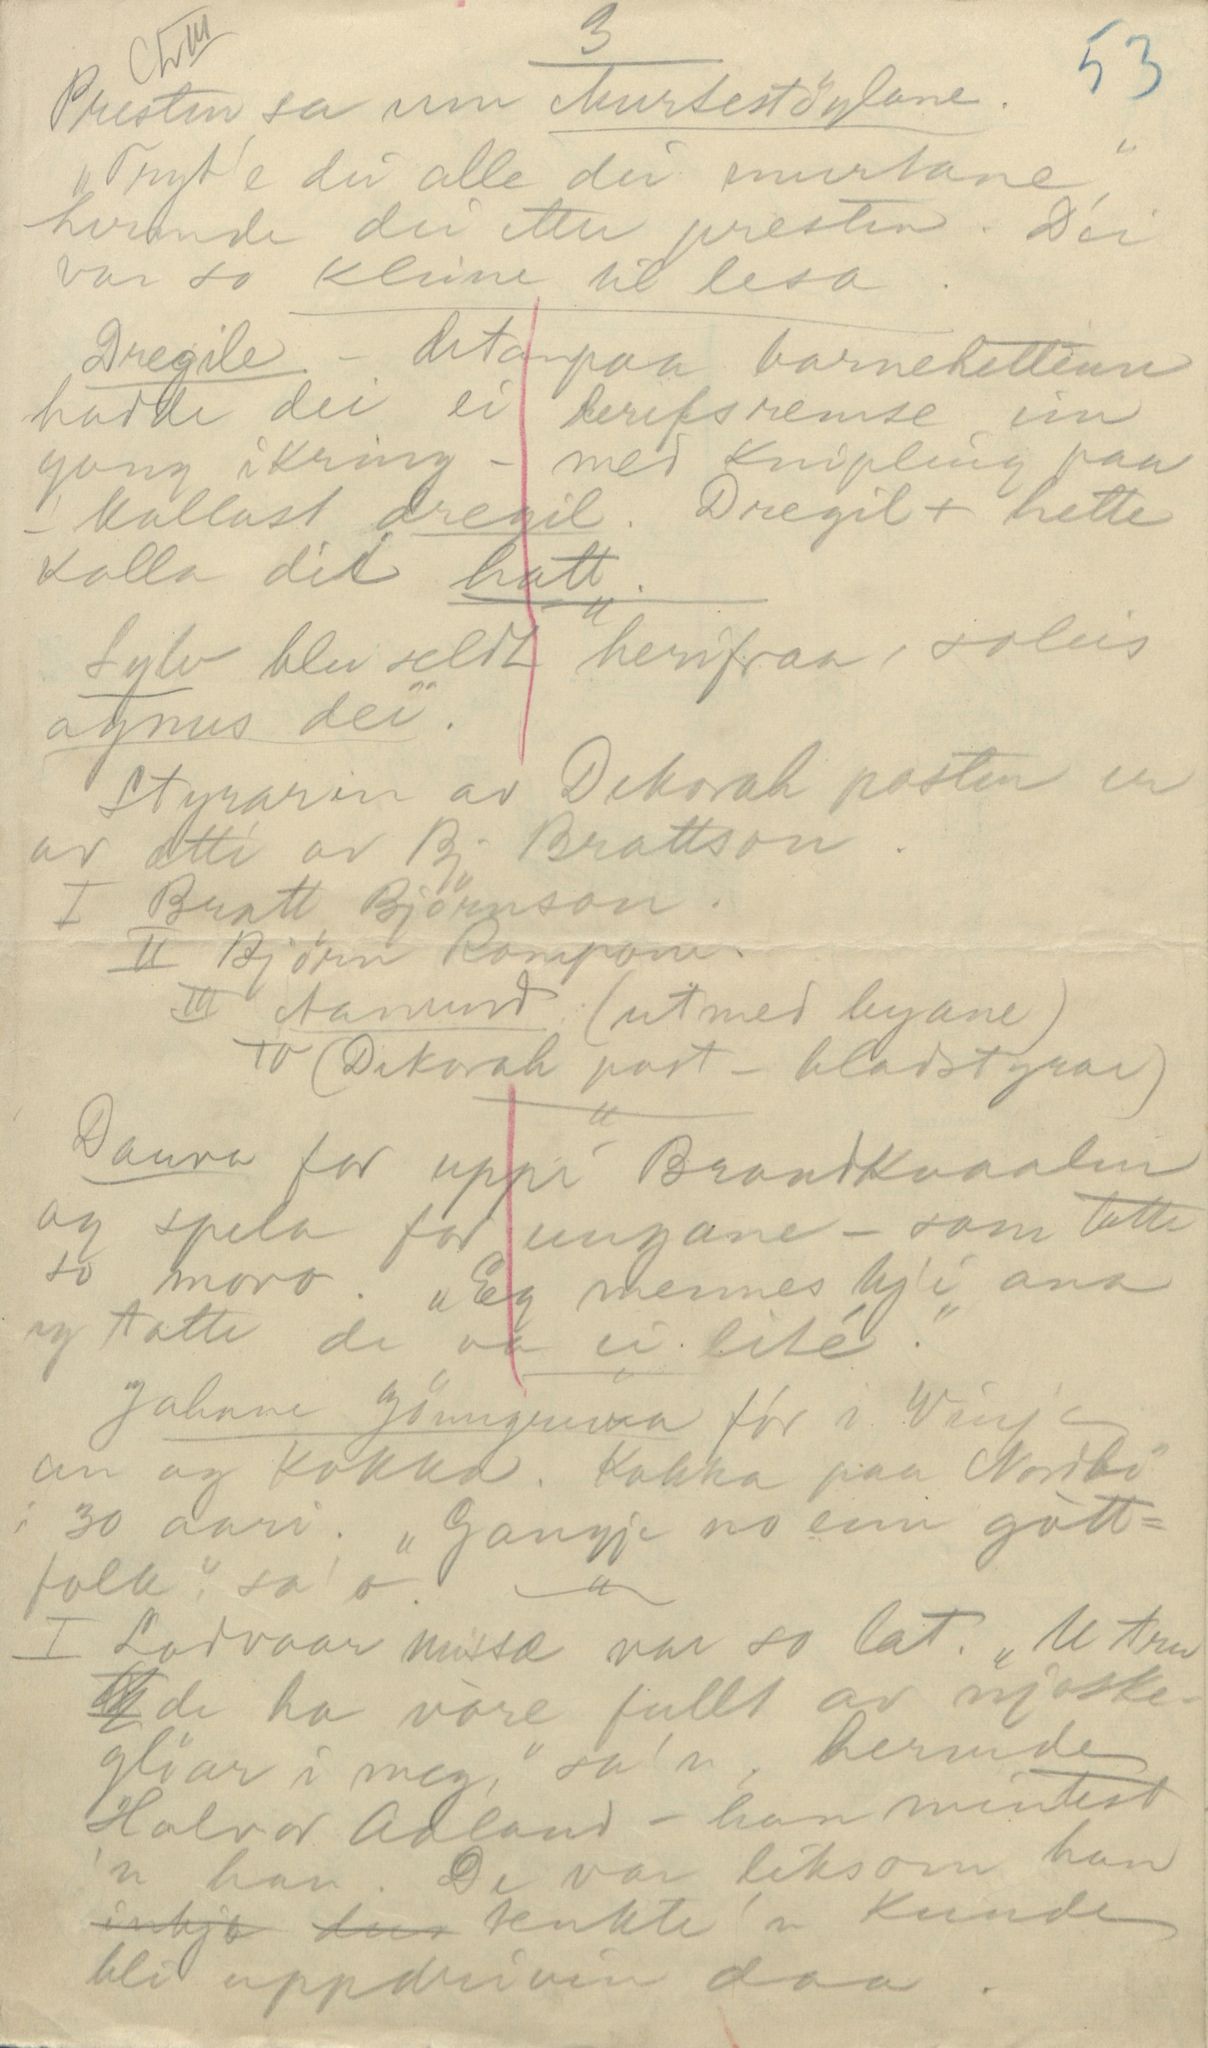 3
53
Presten sa um Murtestöylane.
"Tryt'e dei alle dei murtane,"
hermde dei etter presten. Dei
var so kleine til lesa.
Dregile - Utanpaa barnehettunn
hadde dei ei lereftsremse ein
gong ikring - med knipling paa
- kallast dregil. Dregil + hette
kalla dei hatt.
"
Sylv blei seldt herifraa, soleis
"agnus dei".
Styraren av Dekorah posten er
av ætti av Bj. Brattson.
I Bratt Björnson.
II Björn Kompom.
III Aamund (utmed byane)
IV (Dekorah post - bladstyrar)
"
Daura for uppi Brandkvaalen
og spela for ungane - som totte
so moro. "Eg mennes kj'i ana
eg totte de va ei lite."
"
Jahane Gönngruva fór i Vinje
en og kokka. Kokka paa Nordbö
i 30 aari. "Gangje no ein gött=
folk", sa'o.
"
I Lodvaar Nisse var so lat. "U trur
de ha vore fullt av njoske-
glöar i meg," sa'n, hermde
Halvor Adland - han mintest
'n han. De var liksom han
tenkte 'n kunde
bli uppdriven daa.